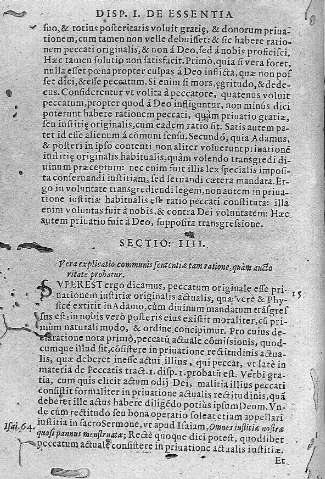 DISP. I. DE ESSENTIA
suo, & totius posteritatis voluit gratię, & donorum priua-
tionem, cum tamen non velle debuisset: & sic habere ratio-
nem peccati originalis, & non à Deo, sed à nobis proficisci.
Hæc tamen solutio non satisfacit. Primo, quia si vera foret,
nulla esset pœna propter culpas à Deo inflicta, quæ non pos
set dici, & esse peccatum. Si enim si mors, ęgritudo, & dede-
cus. Considerentur vt volita à peccatore, quatenus voluit
peccatum, propter quod à Deo infliguntur, non minùs dici
poterunt habere rationem peccati, quàm priuatio gratiæ,
seu iustitię originalis, cum eadem ratio sit. Satis autem pa-
tet id esse alienum à cómuni sensu. Secundò, quia Adamus,
& posteri in ipso contenti non aliter voluerunt priuationé
iustitię originalis habitualis, quàm volendo transgredi di-
uinum præceptum: nec enim fuit illis lex specialis imposi-
ta conseruandi iustitiam, sed seruandi cætera mandata. Er-
go in voluntate transgrediendi legem, non autem in priua-
tione iustitiæ habitualis est ratio peccati constituta: illa
enim voluntas fuit à nobis, & contra Dei voluntatem: Hæc
autem priuatio fuit à Deo, supposita transgressione.
SECTIO: IIII.
Vera explicatio communis sententiæ tam ratione, quàm aucto
ritate probatur.
SVPEREST ergo dicamus, peccatum originale esse pri-
uationem iustitiæ originalis actualis, quæ verè & Phy-
sicè extitit in Adamo, cùm diuinum mandatum trāsgres
sus est: in nobis verò posteris eius existit moraliter, cū pri-
mùm naturali modo, & ordine concipimur. Pro cuius de-
claratione nota primò, peccatū actuale cómissionis, quod-
cumque illud sit, cósistere in priuatione rectitudinis actua-
lis, quæ deberet inesse actui illius, qui peccat, vt latè in
materia de Peccatis tract. 1. disp. 1. probatū est. Verbi gra-
tia, cum quis elicit actum odij Dei, malitia illius peccati
consistit formaliter in priuatione actualis rectitudinis, quā
deberet ille actus habere diligēdo potiùs ipsum Deum. Vn-
de cum rectitudo seu bona operatio soleat etiam appellari
iustitia in sacro Sermone, vt apud Isaiam, Omnes iustitiæ nostræ
Isai. 64.
quasi pannus menstruatæ; Rectè quoque dici potest, quodlibet
peccatum actuale consistere in priuatione actualis iustitiæ.
Et
15